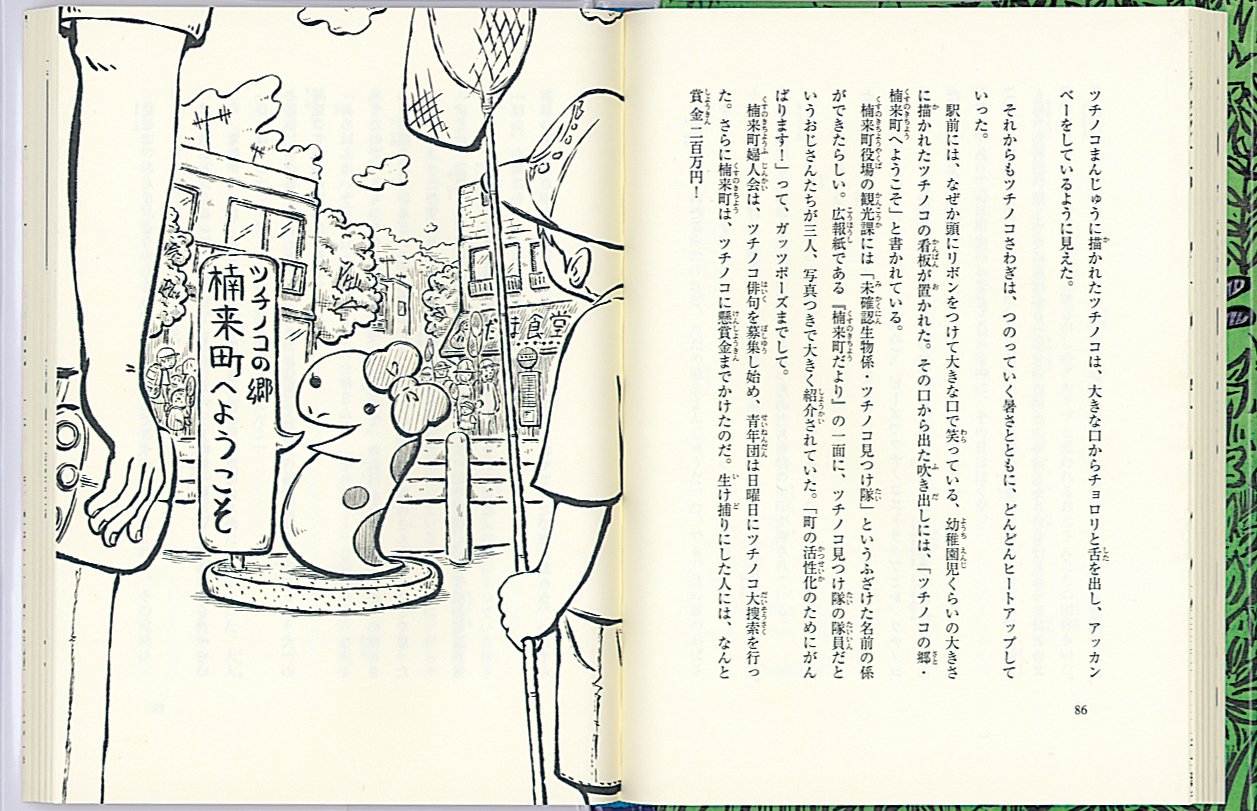 ツチノコまんじゅうに描かれたツチノコは、大きな口からチョロリと舌を出し、アッカン
ベーをしているように見えた。
それからもツチノコさわぎは、つのっていく暑さとともに、どんどんヒートアップして
いった。
駅前には、なぜか頭にリボンをつけて大きな口で笑っている、幼稚園児くらいの大きさ
に描かれたツチノコの看板が置かれた。その口から出た吹き出しには、「ツチノコの郷・
楠来町へようこそ」と書かれている。
楠来町役場の観光課には「未確認生物係・ツチノコ見つけ隊」というふざけた名前の係
ができたらしい。広報紙である『楠来町だより』の一面に、ツチノコ見つけ隊の隊員だと
いうおじさんたちが三人、写真つきで大きく紹介されていた。「町の活性化のためにがん
ばります！」って、ガッツポーズまでして。
楠来町婦人会は、ツチノコ俳句を募集し始め、青年団は日曜日にツチノコ大捜索を行っ
た。さらに楠来町は、ツチノコに懸賞金までかけたのだ。生け捕りにした人には、なんと
賞金二百万円！
86
ツチノコの郷
楠来町へようこそ
だま食堂